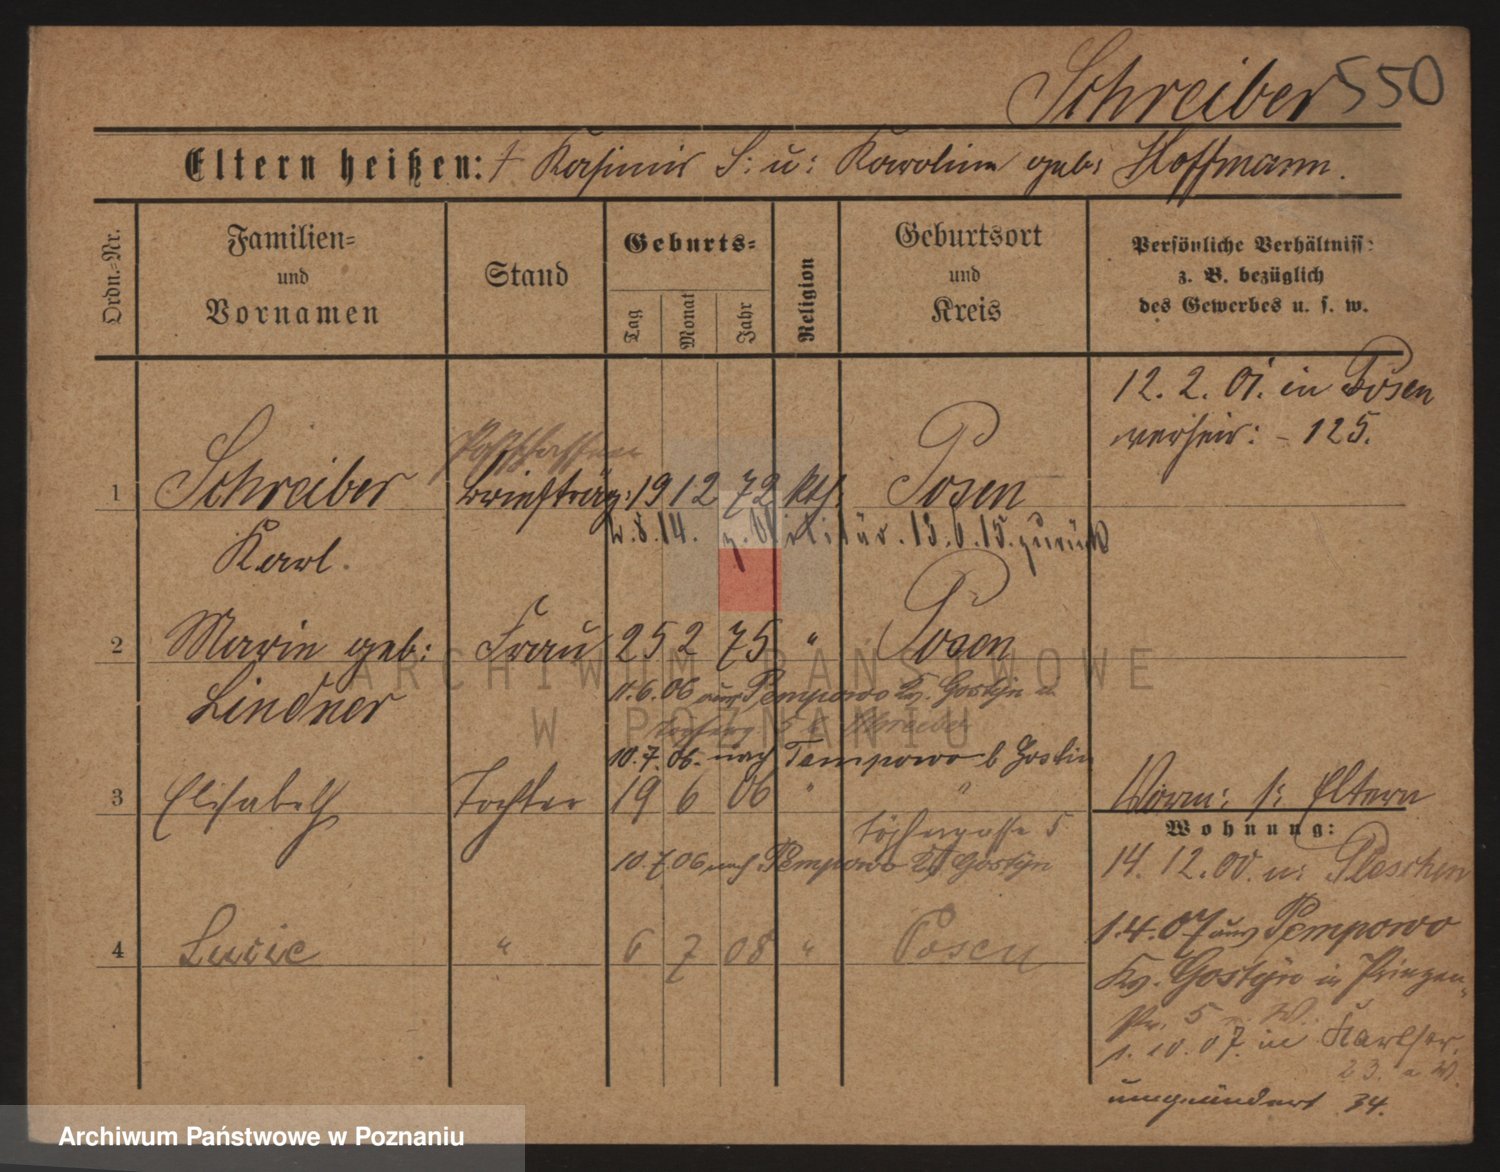 Schreiber 550
Eltern heißen: † Kasimir S: u: Karoline geb: Hoffmann.
Ordn.-Nr.
Familien- und Vornamen
Stand
Geburts-
Tag
Monat
Jahr
Religion
Geburtsort und Kreis
Persönliche Verhältniss: z. B. bezüglich des Gewerbes u. s. w.
12. 2. 01. in Posen
verheir: - 125.
Postschaffner
1 Schreiber Briefträg: 19 12 72 kth. Posen
Karl.
.8.14. z. Militär. 13.6.15. zurück
2 Marie geb: Frau 25 2 75 " Posen
Lindner
11.6.06 aus Pempowo Kr. Gostyn
10.7.06. nach Pempowo b Gostin
3 Elisabeth Tochter 19 6 06 " " Vorm: s: Eltern
Wohnung:
5
10.7.06 nach Pempowo Kr Gostyn
14. 12. 00. n: Pleschen
1.4.07 aus Pempowo
4 Lucie " 6 7 08 " Posen
Kr. Gostyn in Prinzen-
str. 5 W.
1. 10. 07. in Karlstr.
23. a W.
umgeändert 34.
ARCHIWUM PAŃSTWOWE
W POZNANIU
Archiwum Państwowe w Poznaniu